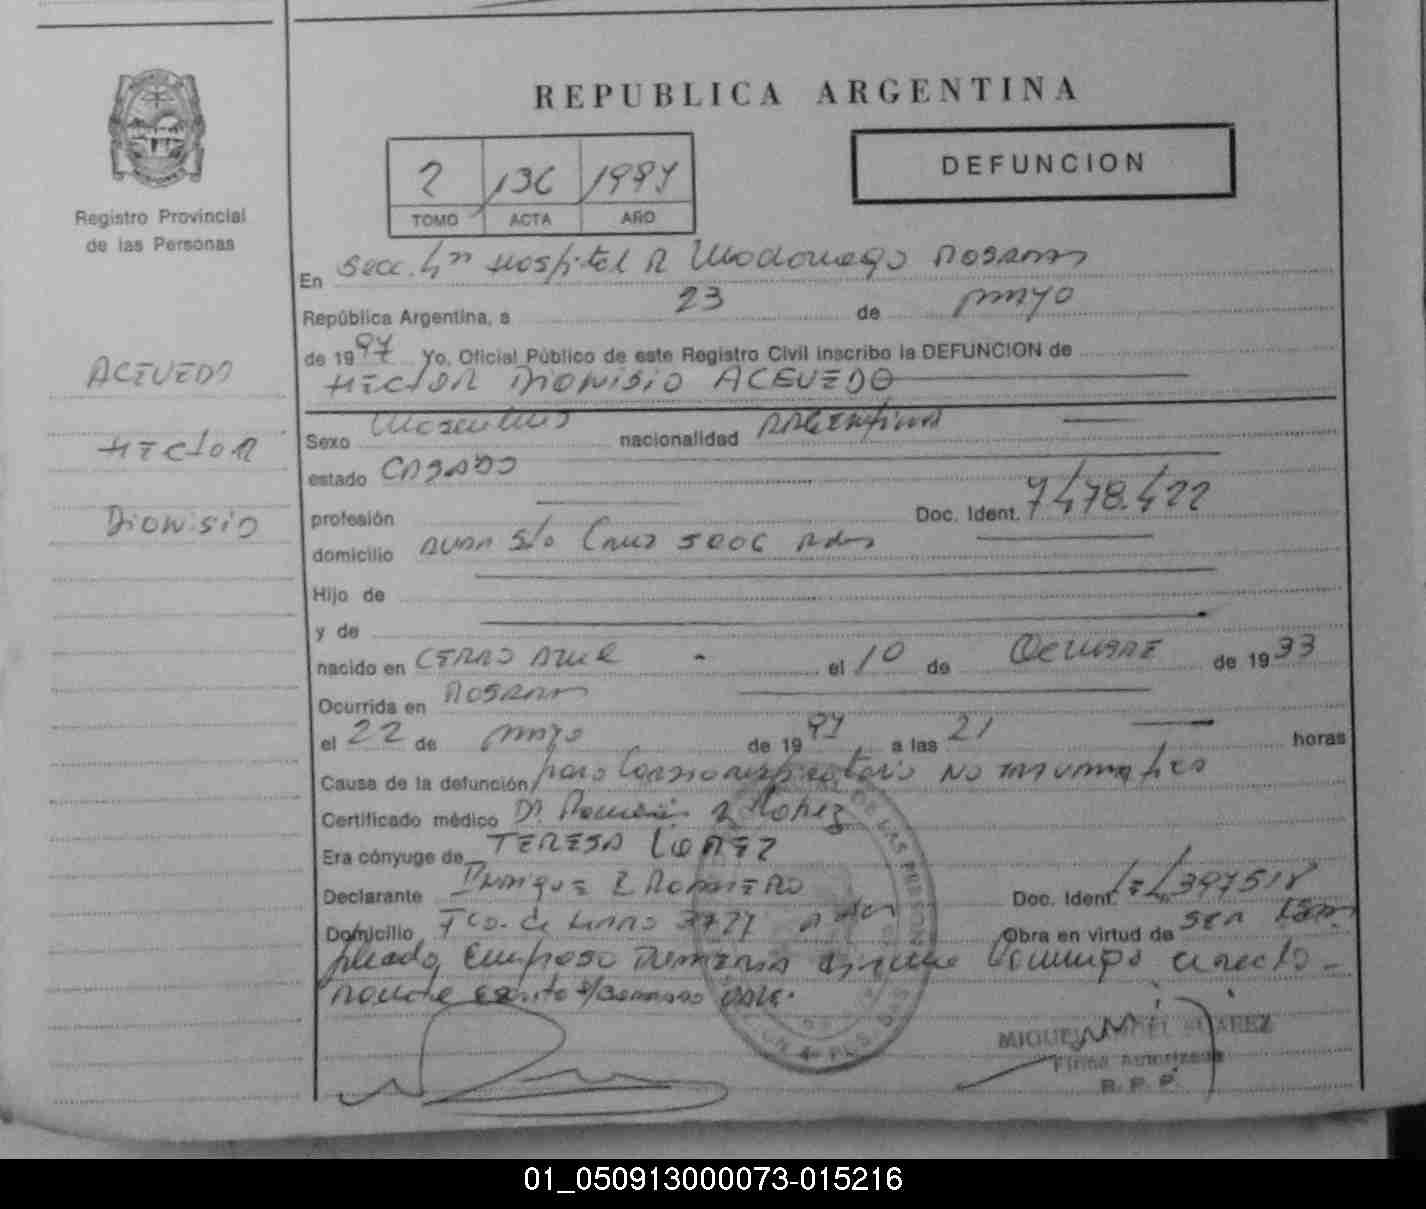 REPUBLICA ARGENTINA
DEFUNCION
2 136 1997
TOMO ACTA AÑO
Registro Provincial
de las Personas
ACEVEDO
HECTOR
DIONISIO
En Secc. 4ta Hospital R Rosario
República Argentina, a 23 de mayo
de 1997 Yo, Oficial Público de este Registro Civil inscribo la DEFUNCION de
HECTOR DIONISIO ACEVEDO
Sexo Masculino nacionalidad ARGENTINA
estado CASADO
profesión Doc. Ident. 7478.422
domicilio Cruz
Hijo de
y de
nacido en CERRO AZUL el 10 de OCTUBRE de 1933
Ocurrida en ROSARIO
el 22 de mayo de 1997 a las 21 horas
Causa de la defunción paro Cardiorespiratorio NO traumatico
Certificado médico Dr Lopez
Era cónyuge de TERESA LOPEZ
Declarante Enrique R ROMERO Doc. Ident.
Domicilio Obra en virtud de ser Em
pleado Empresa
MIGUEL SUAREZ
Firma Autorizada
R. P. P.
01_050913000073-015216